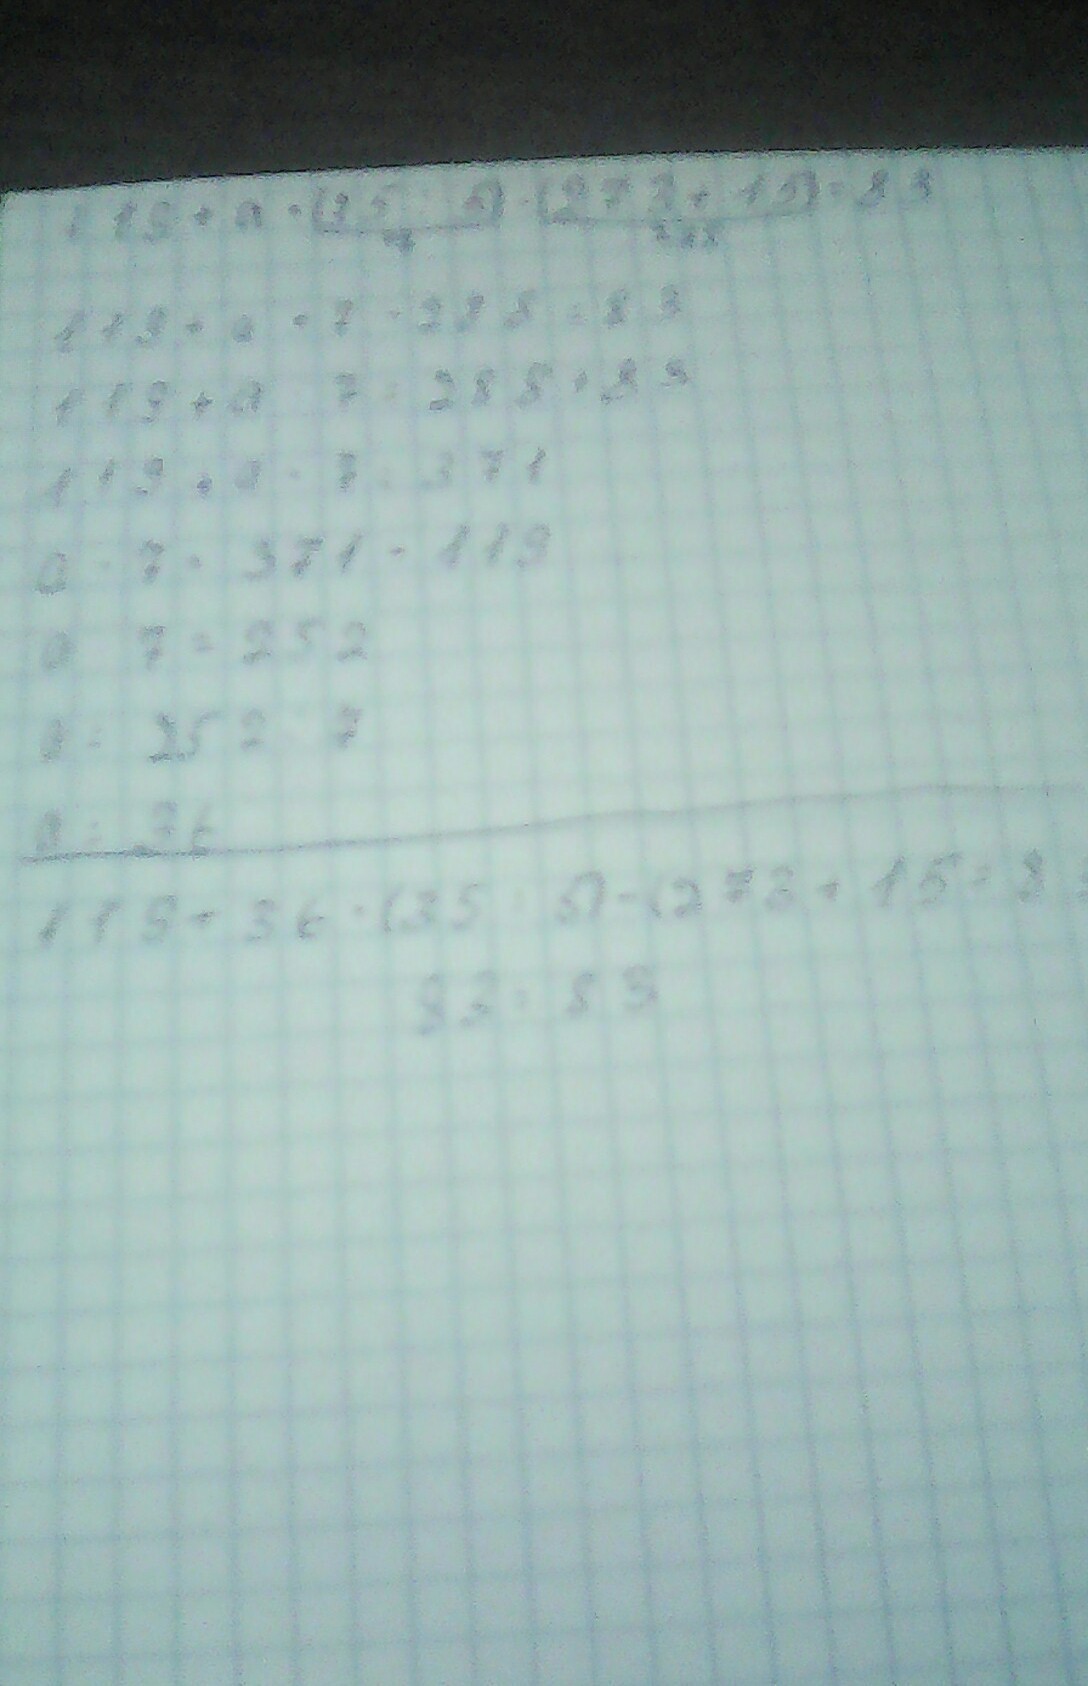 119 + a · (35 : 5) - (273 + 15) = 83
7 288
119 + a · 7 - 288 = 83
119 + a · 7 = 288 + 83
119 + a · 7 = 371
a · 7 = 371 - 119
a · 7 = 252
a = 252 : 7
a = 36
119 + 36 · (35 : 5) - (273 + 15 = 8
83 = 83